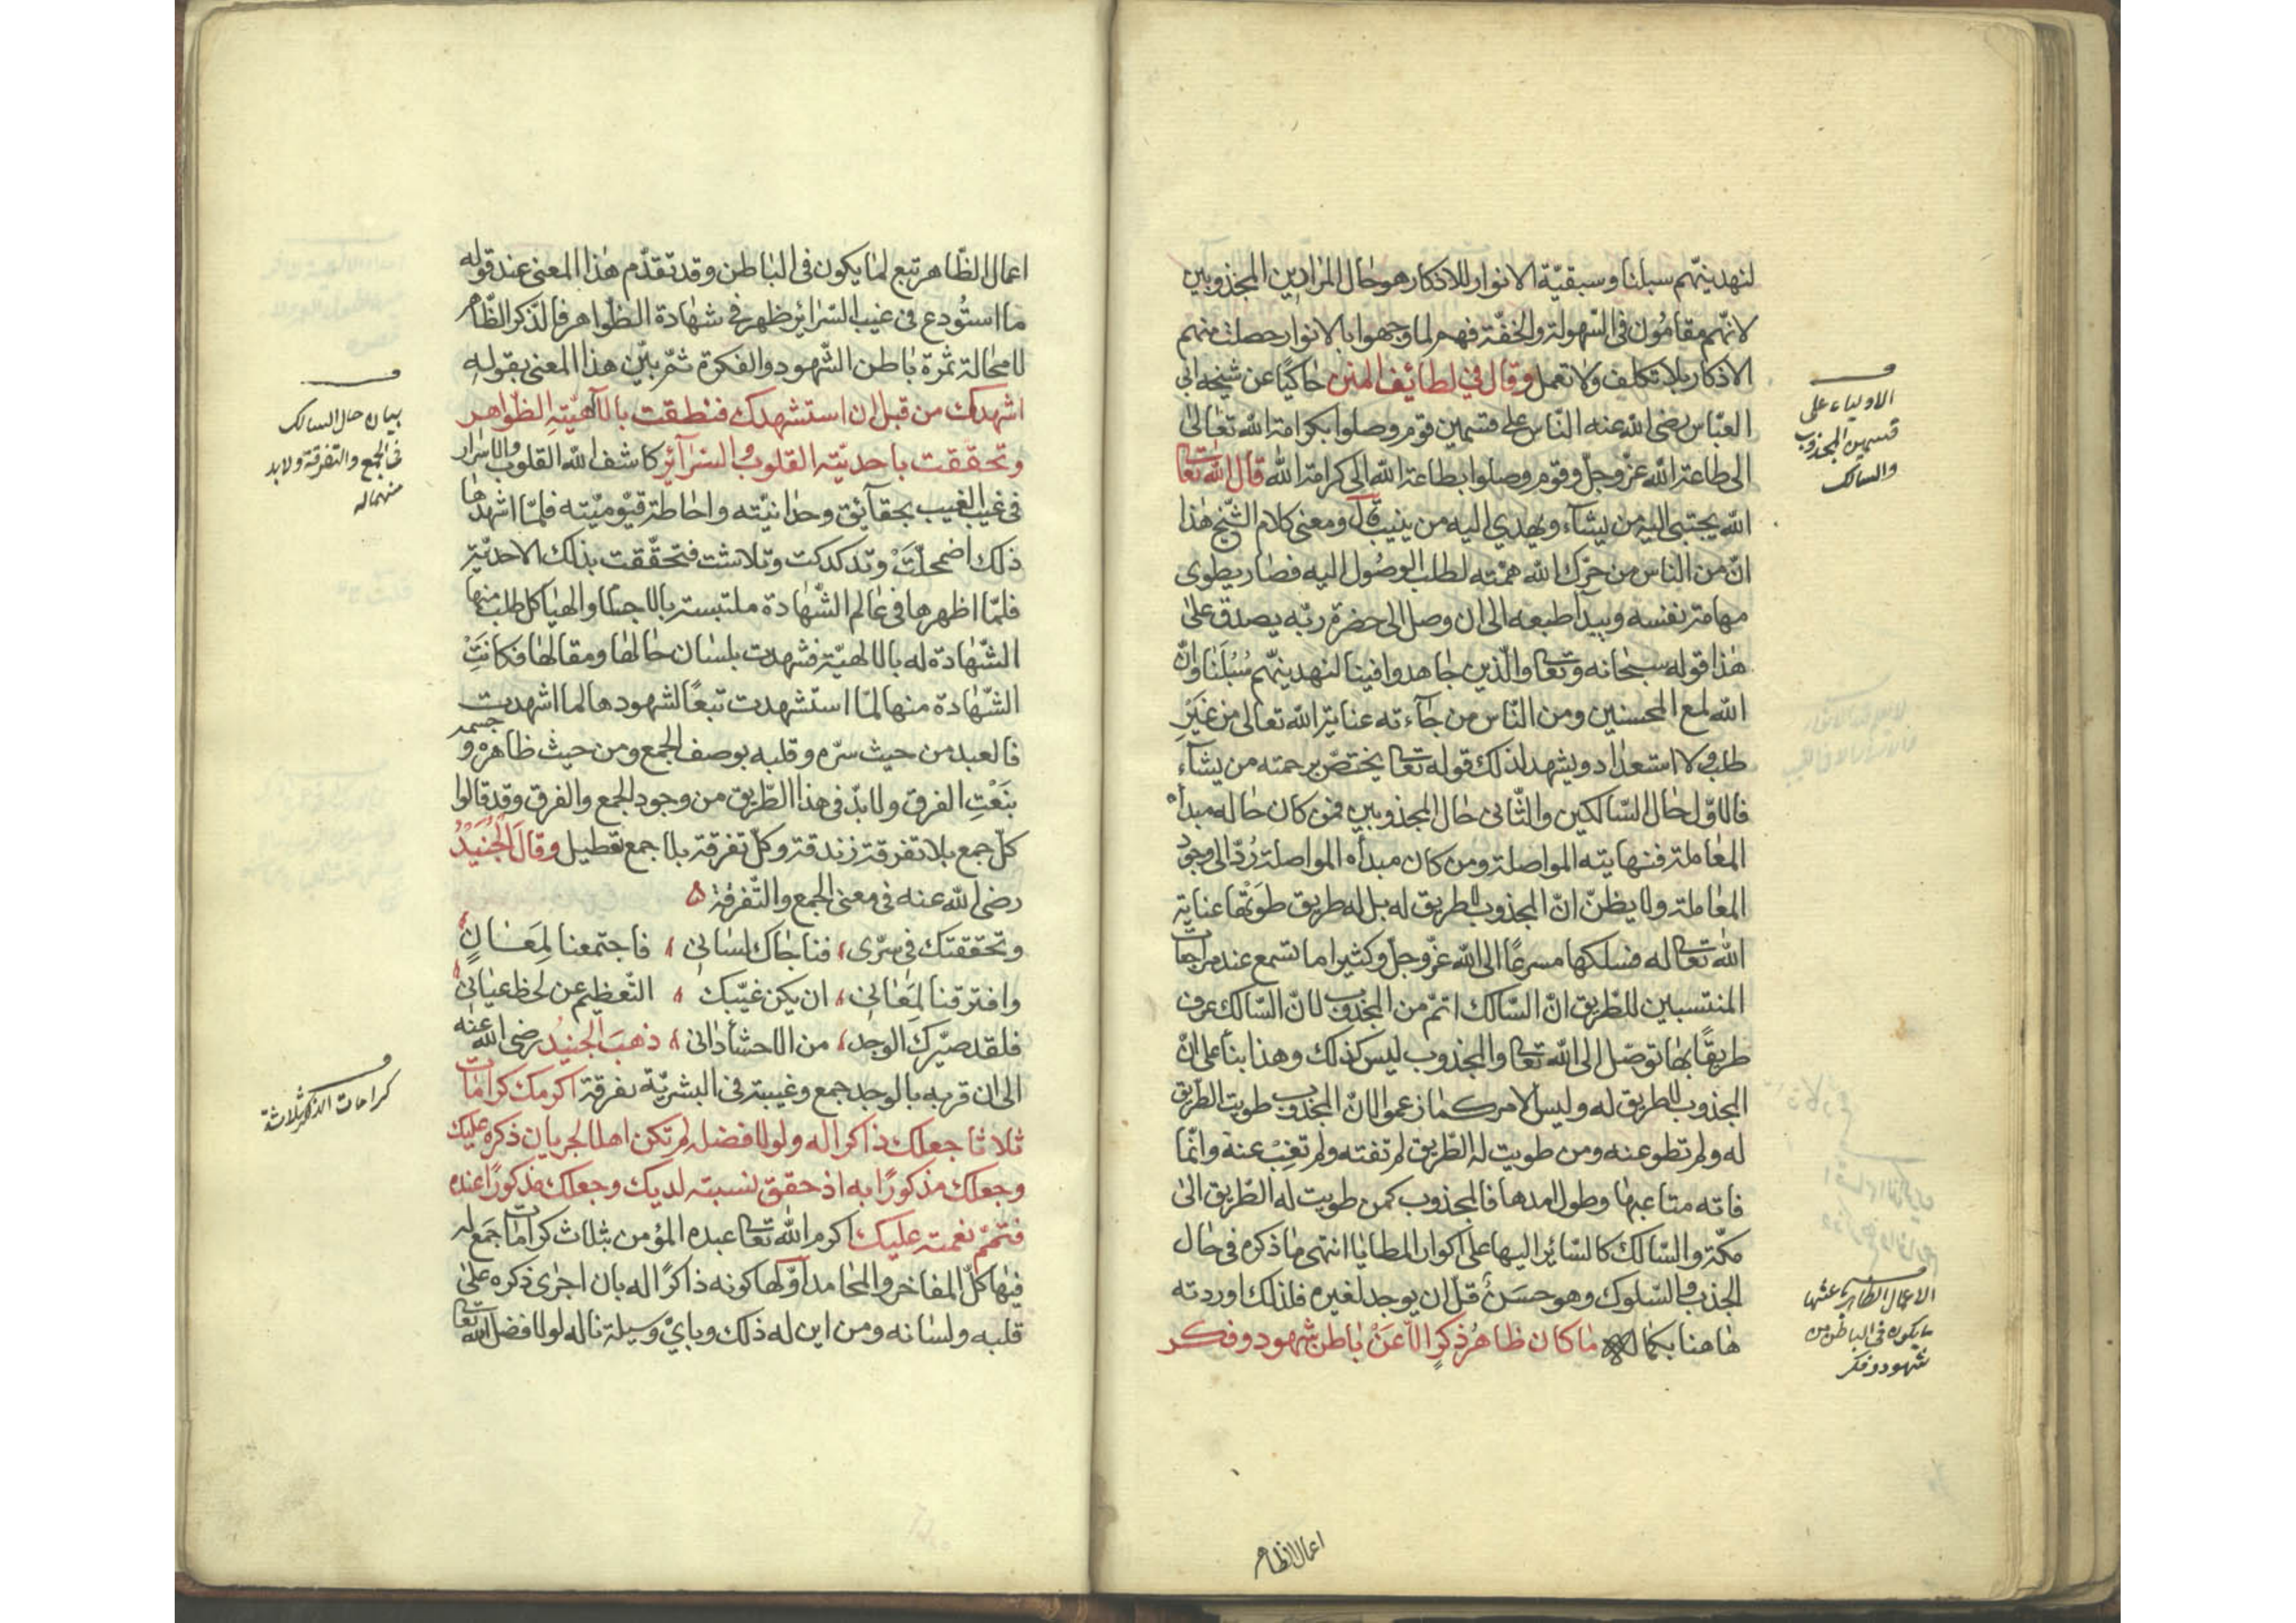 لنهدينّهم سبلنا وسبقيّة الانوار للاذكار هو حال المرادين المجذوبين
لانّهم مقامون فى السّهولة والخفّة فهم لما وجهوا بالانوار حصلت منهم
الاذكار بلا تكليف ولا تعمل وقال في لطايف المنن حاكيًا عن شيخه ابى
العبّاس رضى الله عنه النّاس على قسمين قوم وصلوا بكرامة الله تعالى
الى طاعة الله عزّ وجلّ وقوم وصلوا بطاعة الله الى كرامة الله قال الله تعا
الله يجتبى اليه من يشآء ويهدي اليه من ينيب قال ومعنى كلام الشّيخ هذا
انّ من النّاس من حرّك الله همّته لطلب الوصول اليه فصار يطوى
مهامة نفسه وبيدا طبعه الى ان وصل الى حضرة ربّه يصدق على
هذا قوله سبحانه وتعا والّذين جاهدوا فينا لنهدينّهم سُبُلَنا وانّ
الله لمع المحسنين ومن النّاس من جآءته عناية الله تعالى من غَيْرِ
طلب ولا استعداد ويشهد لذلك قوله تعا يختصّ برحمته من يشآء
فالاوّل حال السّالكين والثّانى حال المجذوبين فمن كان حاله مبدأه
المعاملة فنهايته المواصلة ومن كان مبدأه المواصلة رُدّ الى وجود
المعاملة ولا يظنّ انّ المجذوب لا طريق له بل له طريق طوتْها عناية
الله تعا له فسلكها مسرعًا الى الله عزّ وجلّ وكثيرا ما تسمع عند مراجعات
المنتسبين للطّريق انّ السّالك اتمّ من المجذوب لانّ السّالك عرف
طريقًا بها توصّل الى الله تعا والمجذوب ليس كذلك وهذا بنأ على انّ
المجذوب لا طريق له وليس الامر كما زعموا لانّ المجذوب طويت الطّريق
له ولم تطو عنه ومن طويت له الطّريق لم تفته ولم تغِبْ عنه وانّما
فاته متاعبها وطول امدها فالمجذوب كمن طويت له الطّريق الى
مكّة والسّالك كالسّائر اليها على اكوار المطايا انتهى ما ذكره فى حال
الجذب والسّلوك وهو حسَنٌ قلّ ان يوجد لغيره فلذلك اوردته
هاهنا بكماله ما كان ظاهرُ ذكرٍ الّا عَنْ باطن شهود وفكر
الاولياء على
قسمين المجذوب
والسالك
الاعمال الظاهرة عنها
ما يكون فى الباطن من
شهود وفكر
اعمال الظاهر
اعمال الظّاهر تبع لما يكون فى الباطن وقد تقدّم هذا المعنى عند قوله
ما استُودع فى غيب السّرائر ظهر فى شهادة الظّواهر فالذّكر الظّاهر
لا محالة ثمرة باطن الشّهود والفكرة ثمّ بيّن هذا المعنى بقوله
اشهدك من قبل ان استشهدك فنطقت بالآهيّتهِ الظّواهر
وتحقّقت باحديّته القلوب والسّرآئر كاشف الله القلوب والاسرار
فى غيب الغيب بحقآئق وحدانيّته واحاطة قيّوميّته فلمّا اشهدها
ذلك اضمحلّتْ وتدكدكت وتلاشت فتحقّقت بذلك الاحديّة
فلمّا اظهرها فى عالم الشّهادة ملتبسة بالاجسا والهياكل طلب منها
الشّهادة له بالالهيّة فشهدت بلسان حالها ومقالها فكانتْ
الشّهادة منها لمّا استشهدت تبعًا لشهودها لما اشهدت
فالعبد من حيث سرّه وقلبه بوصف الجمع ومن حيث ظاهره وجسمه
بنَعْتِ الفرق ولا بدّ فى هذا الطّريق من وجود الجمع والفرق وقد قالوا
كلّ جمع بلا تفرقة زندقة وكلّ تفرقة بلا جمع تعطيل وقالَ الجُنَيْدُ
رضى الله عنه فى معنى الجمع والتّفرقة
وتحقّقتك فى سرّى، فناجاك لسانى، فاجتمعنا لِمَعَانٍ
وافترقنا لِمَعَانى، ان يكن غيّبك، التّعظيم عن لحظ عيانى
فلقد صيّركَ الوجد، من الاحشأ دانى، ذهبَ الجنيدُ رضى الله عنه
الى ان قربه بالوجد جمع وغيبته فى البشريّة تفرقة اكرمك كرامات
ثلاثا جعلك ذاكرا له ولولا فضله لم تكن اهلا لجريان ذكره عليك
وجعلك مذكورًا به اذ حقّق نسبته لديك وجعلك مذكورًا عنده
فتمّم نعمته عليك اكرم الله تعا عبده المؤمن بثلاث كرامات جمع له
فيها كلّ المفاخر والمحامد اوّلها كونه ذاكرًا له بان اجرى ذكره على
قلبه ولسانه ومن اين له ذلك وبايّ وسيلة ناله لولا فضل الله تعا
بيان حال السالك
فى الجمع والتفرقة ولابد
منهما له
كرامات الذكر ثلاثة